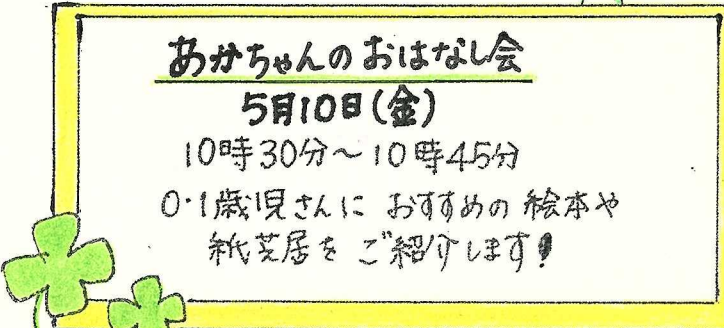 あかちゃんのおはなし会
5月10日(金)
10時30分～10時45分
0・1歳児さんに おすすめの 絵本や
紙芝居を ご紹介します!